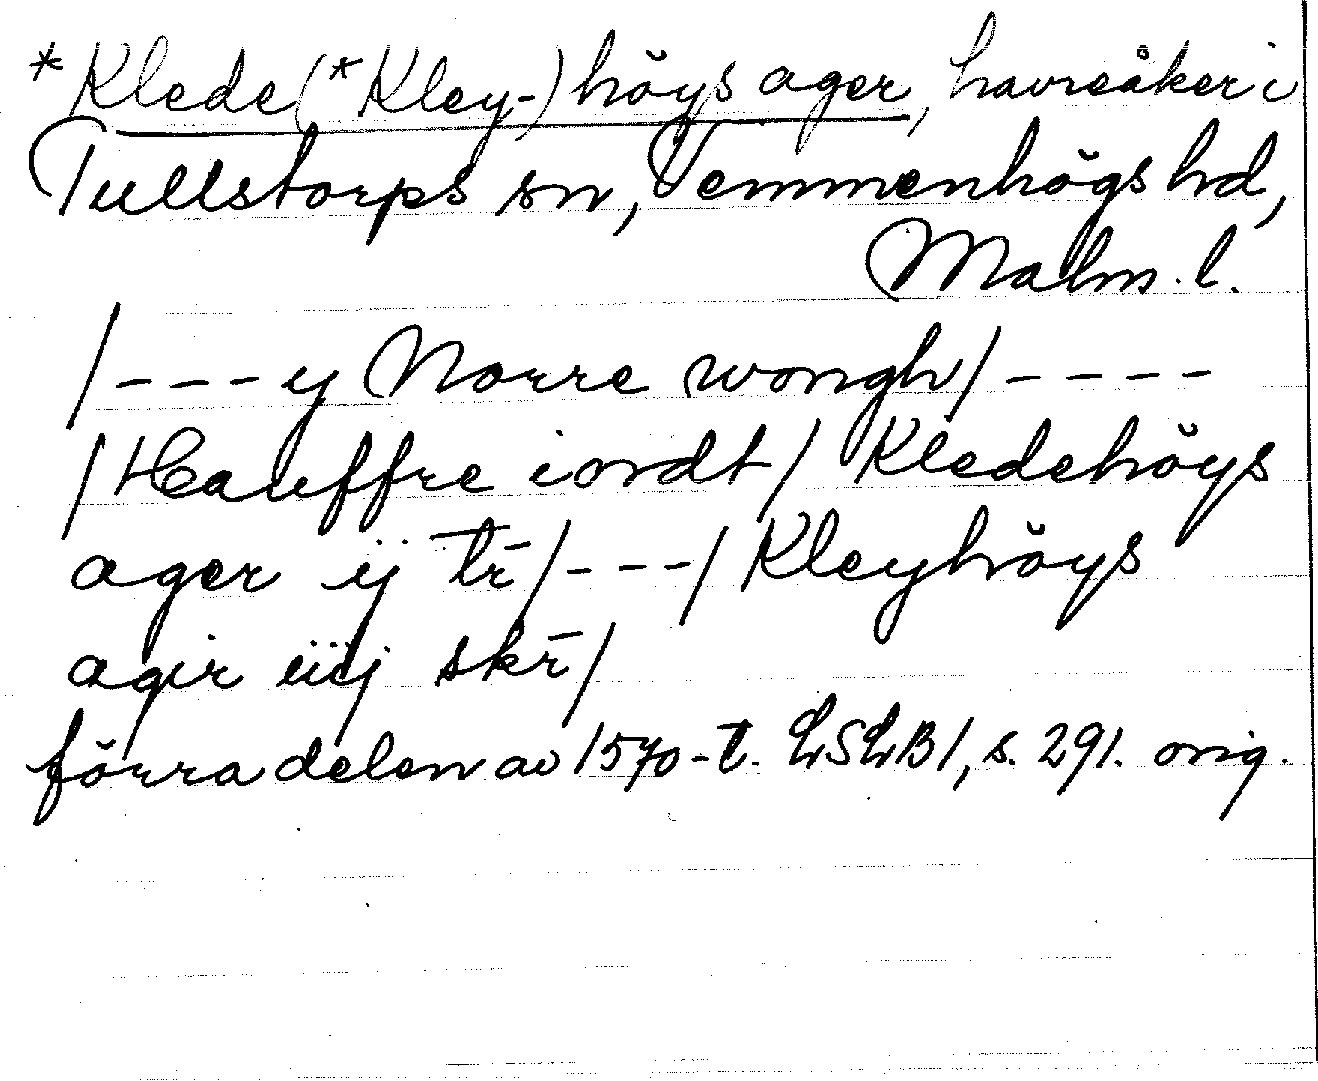 *Klede(*Kley-)höys ager, havreåker i
Tullstorps sn, Vemmenhögs hd,
Malm. l.
/---y Norre wongh/----
/Hauffre iordt/ Kledehöys
ager ij tr̄/---/Kleyhöys
agir iiij skr̄/
förra delen av 1570-t. LSLB1, s. 291. orig.